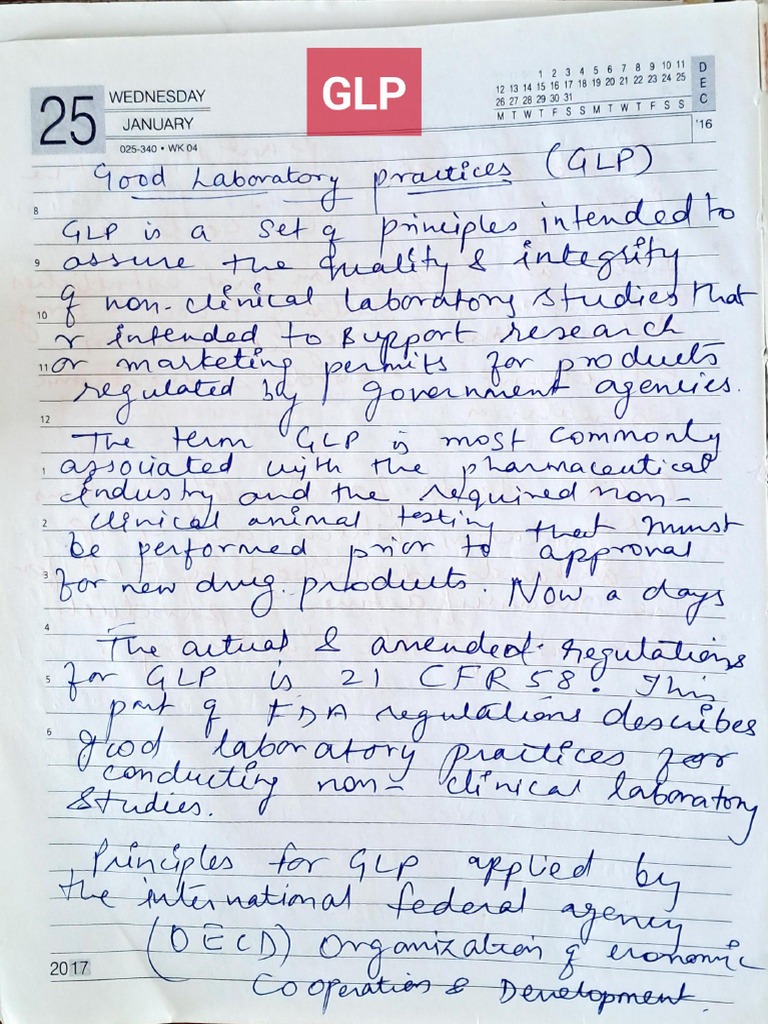 25
WEDNESDAY
JANUARY
025-340 • WK 04
GLP
1 2 3 4 5 6 7 8 9 10 11
12 13 14 15 16 17 18 19 20 21 22 23 24 25
26 27 28 29 30 31
M T W T F S S M T W T F S S
DEC
'16
Good Laboratory practices (GLP)
8
GLP is a set of principles intended to
9 assure the quality & integrity
of non-clinical laboratory studies that
10
r intended to support research
11 or marketing permits for products
regulated by government agencies.
12
The term GLP is most commonly
1 associated with the pharmaceutical
industry and the required non-
2 clinical animal testing that must
be performed prior to approval
3 for new drug products. Now a days
4
The actual & amended regulations
5 for GLP is 21 CFR 58. This
part of FDA regulations describes
6 good laboratory practices for
conducting non- clinical laboratory
studies.
Principles for GLP applied by
the international federal agency
(OECD) Organization of economic
2017
Cooperation & Development.